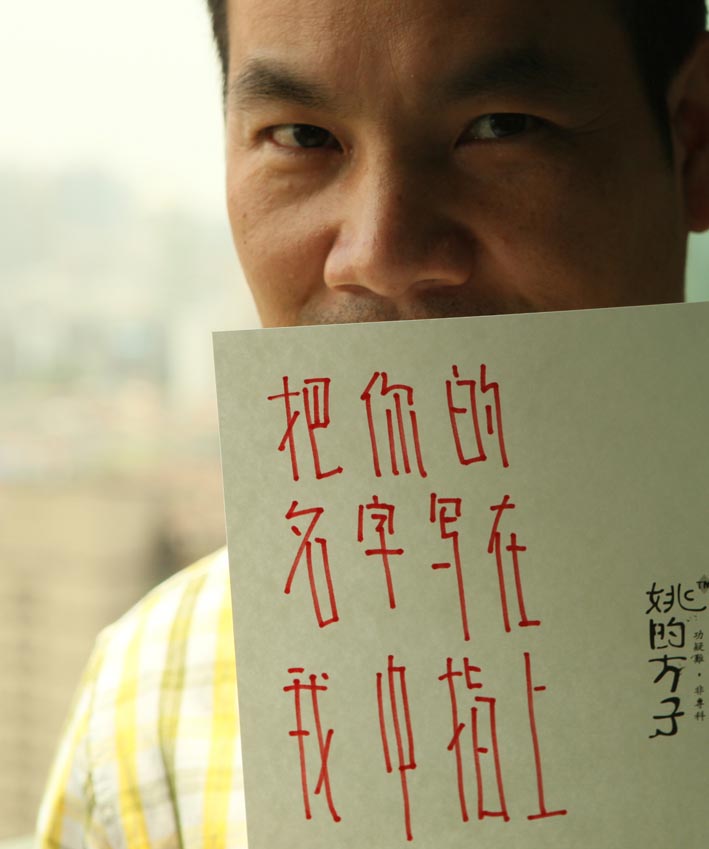 把你的
名字写在
我中指上
姚的方子
TM
功疑難·非專科